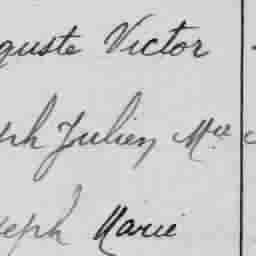 guste Victor
ph Julien Mie
seph Marie